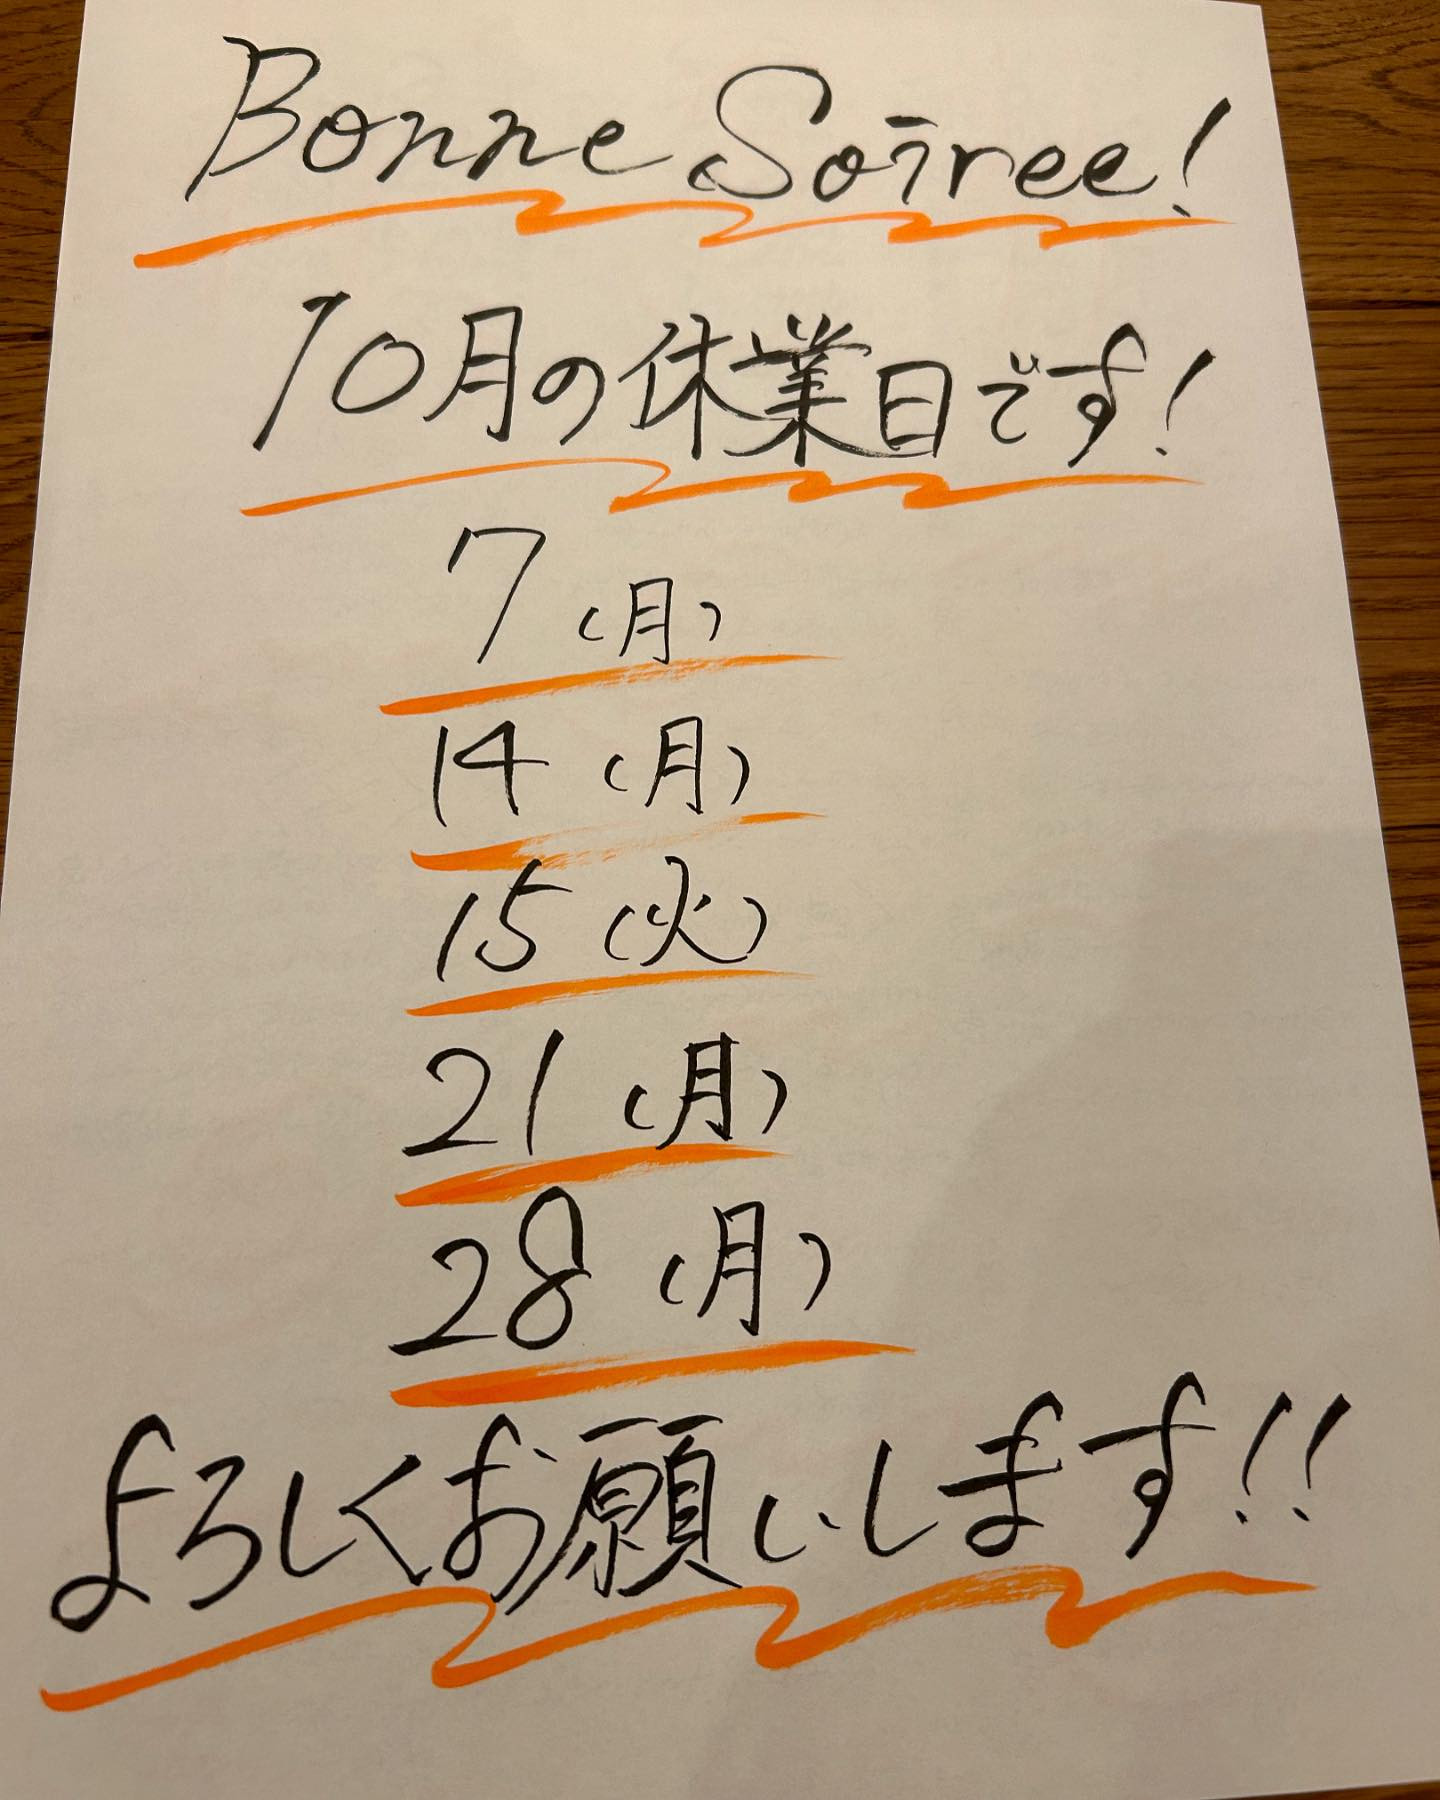 Bonne Soiree!
10月の休業日です!
7(月)
14(月)
15(火)
21(月)
28(月)
よろしくお願いします!!